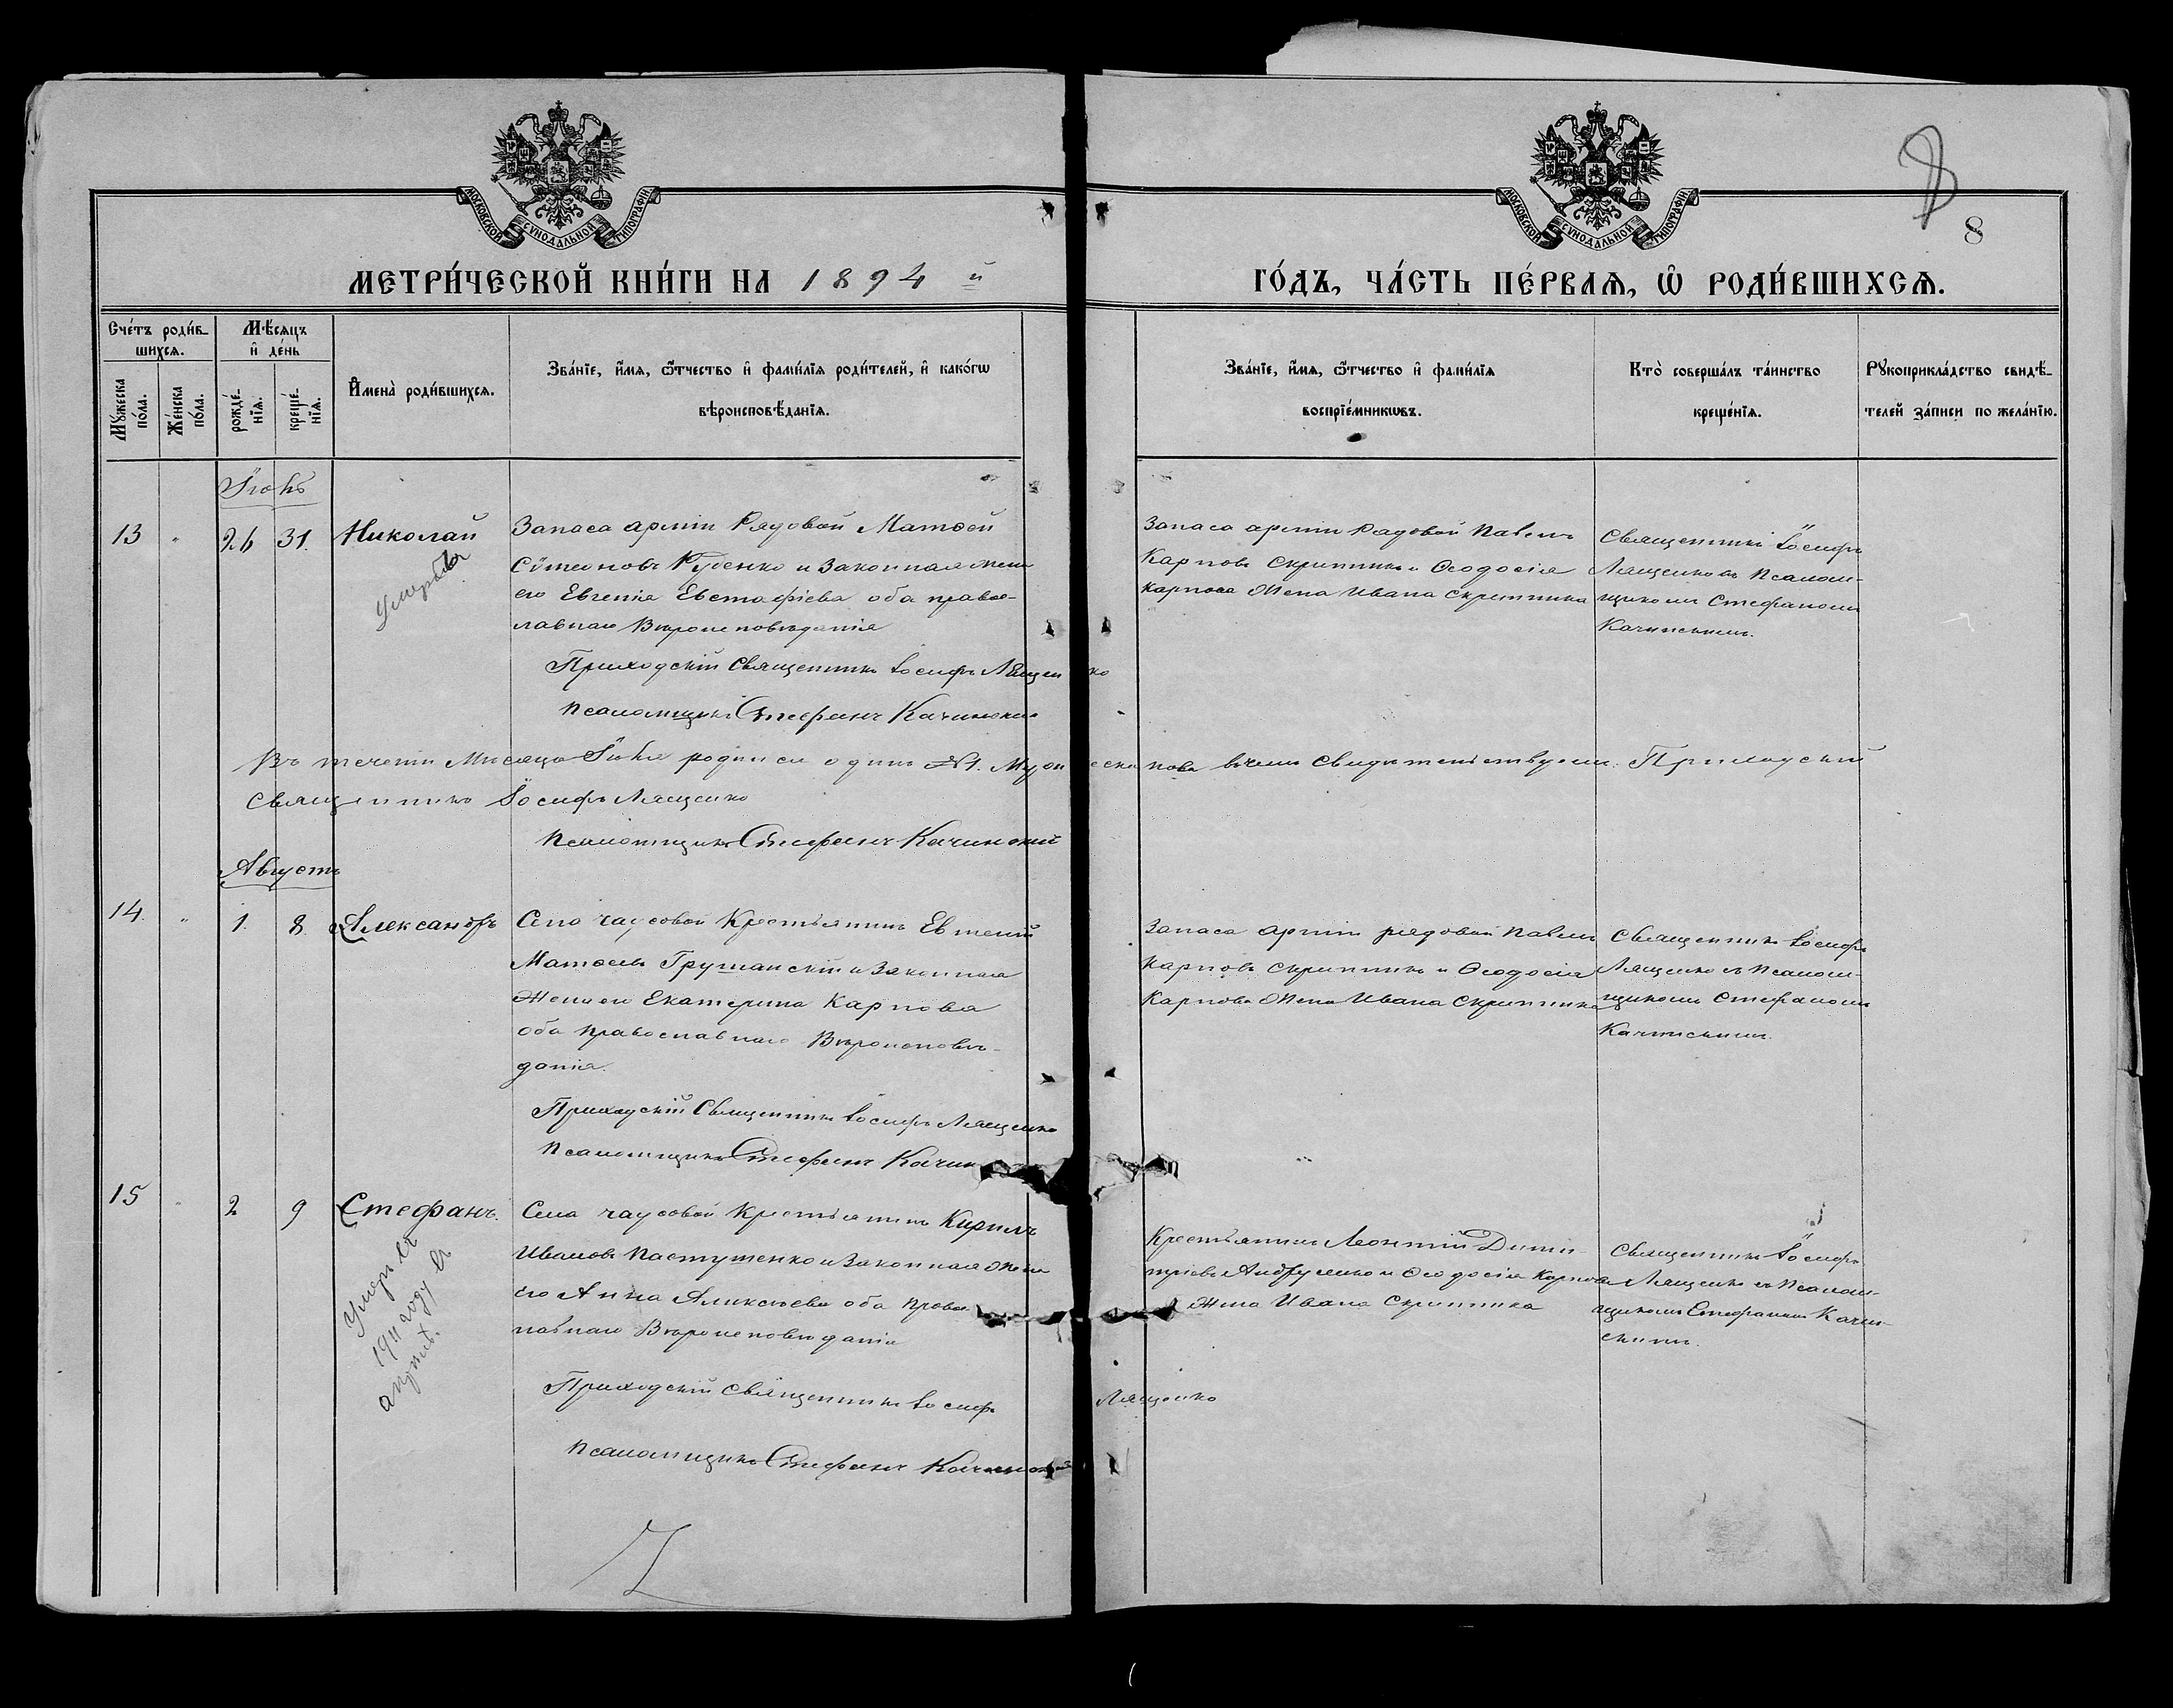 МОСКОВСКОЙ СУНОДАЛЬНОЙ ТИПОГРАФІИ
МОСКОВСКОЙ СУНОДАЛЬНОЙ ТИПОГРАФІИ
8
8
МЕТРИ́ЧЕСКОЙ КНИ́ГИ НА 1894 й
ГО́ДЪ, ЧА́СТЬ ПЕ́РВАѦ, Ѡ҆ РОДИ́ВШИХСѦ.
Сче́тъ роди́в-
шихсѧ.
Мꙋ́жеска по́ла.
Же́нска по́ла.
Мѣ́сѧцъ
и҆ де́нь
рожде́-
нїѧ.
креще́-
нїѧ.
И҆мена̀ роди́вшихсѧ.
Зва́нїе, и҆́мѧ, ѻ҆́тчество и҆ фами́лїѧ роди́телей, и҆ како́гѡ
вѣроисповѣ́данїѧ.
Зва́нїе, и҆́мѧ, ѻ҆́тчество и҆ фами́лїѧ
воспрїе́мникѡвъ.
Кто̀ соверша́лъ та́инство
креще́нїѧ.
Рꙋкоприкла́дство свидѣ́-
телей за́писи по жела́нїю.
Іюль
13 " 26 31. Николай
умерълъ
Запаса арміи Рядовой Матѳей
Сѵмеоновъ Рубенко и Законная жена
его Евгенія Евстафіева оба правос-
лавнаго Вѣроисповѣданія
Приходскій Священникъ Іосифъ Лященко
Псаломщикъ Стефанъ Качинскій
Запаса арміи Рядовой Павелъ
Карповъ Скрипникъ и Ѳеодосія
Карпова Жена Ивана Скрипника
Священникъ Іосифъ
Лященко съ Псалом-
щикомъ Стефаномъ
Качинскимъ.
Въ теченіи Мѣсяца Іюля родился одинъ №1. Мужеска пола въ чемъ свидѣтельствуемъ: Приходскій
Священникъ Іосифъ Лященко
Псаломщикъ Стефанъ Качинскій
Августъ
14. " 1. 8. Александръ
Села Чаусовой Крестьянинъ Евгеній
Матѳеевъ Грушанскій и Законная
Жена его Екатерина Карпова
оба православнаго Вѣроисповѣ-
данія.
Приходскій Священникъ Іосифъ Лященко
Псаломщикъ Стефанъ Качин
Запаса арміи рядовой Павелъ
Карповъ Скрипникъ и Ѳеодосія
Карпова Жена Ивана Скрипника
Священникъ Іосифъ
Лященко съ Псалом-
щикомъ Стефаномъ
Качинскимъ.
15 " 2 9 Стефанъ.
Умеръ въ
1911 году въ
апрѣлѣ.
Села Чаусовой Крестьянинъ Кирилъ
Ивановъ Пастушенко и Законная Жена
его Анна Алексѣева оба право-
лавнаго Вѣроисповѣданія
Приходскій Священникъ Іосифъ Лященко
Псаломщикъ Стефанъ Качинскій
Крестьянинъ Леонтій Дими-
тріевъ Андрусенко и Ѳеодосія Карпова
Жена Ивана Скрипника
Священникъ Іосифъ
Лященко съ Псалом-
щикомъ Стефаномъ Качин-
скимъ.